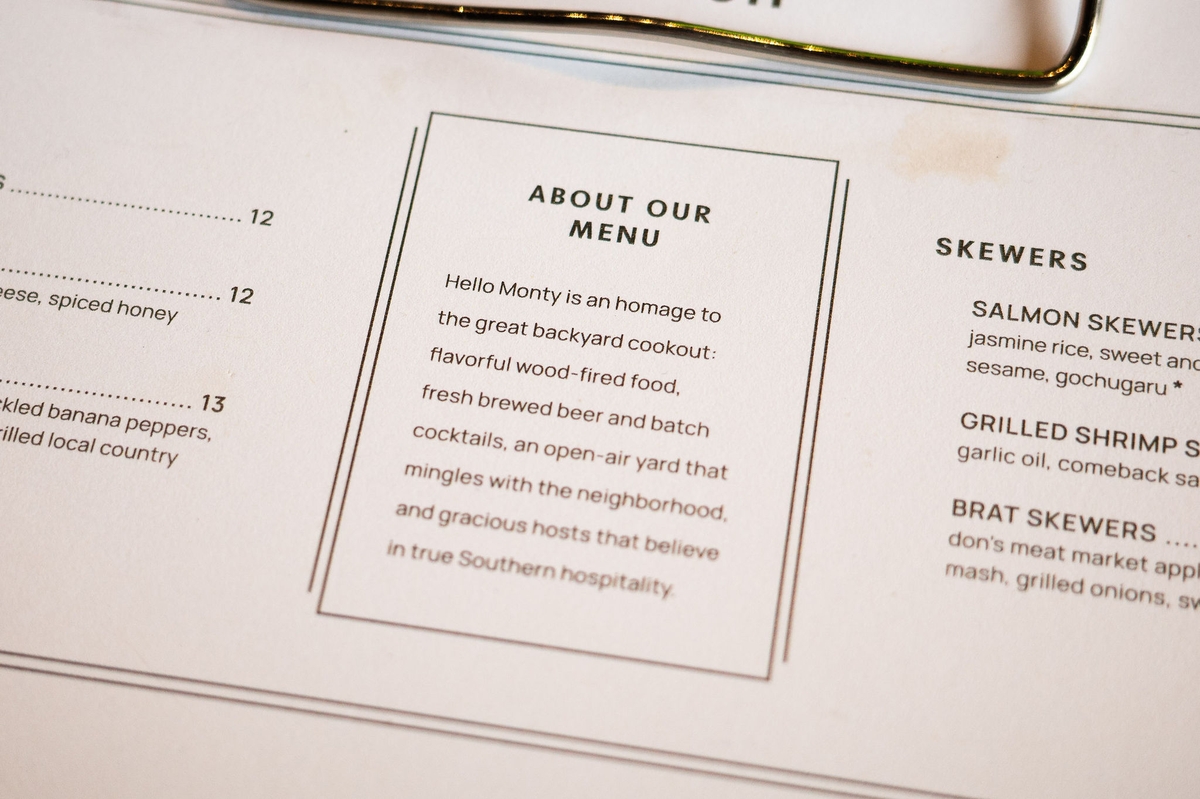 12
12
spiced honey
13
banana peppers,
local country
ABOUT OUR
MENU
Hello Monty is an homage to
the great backyard cookout:
flavorful wood-fired food,
fresh brewed beer and batch
cocktails, an open-air yard that
mingles with the neighborhood,
and gracious hosts that believe
in true Southern hospitality.
SKEWERS
SALMON SKEWERS
jasmine rice, sweet and
sesame, gochugaru *
GRILLED SHRIMP
garlic oil, comeback
BRAT SKEWERS ....
don's meat market
mash, grilled onions,